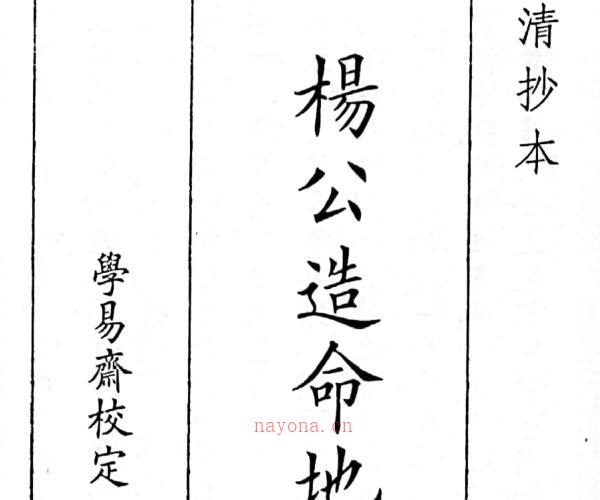 清抄本
楊公造命地
學易齋校定
nayona.cn